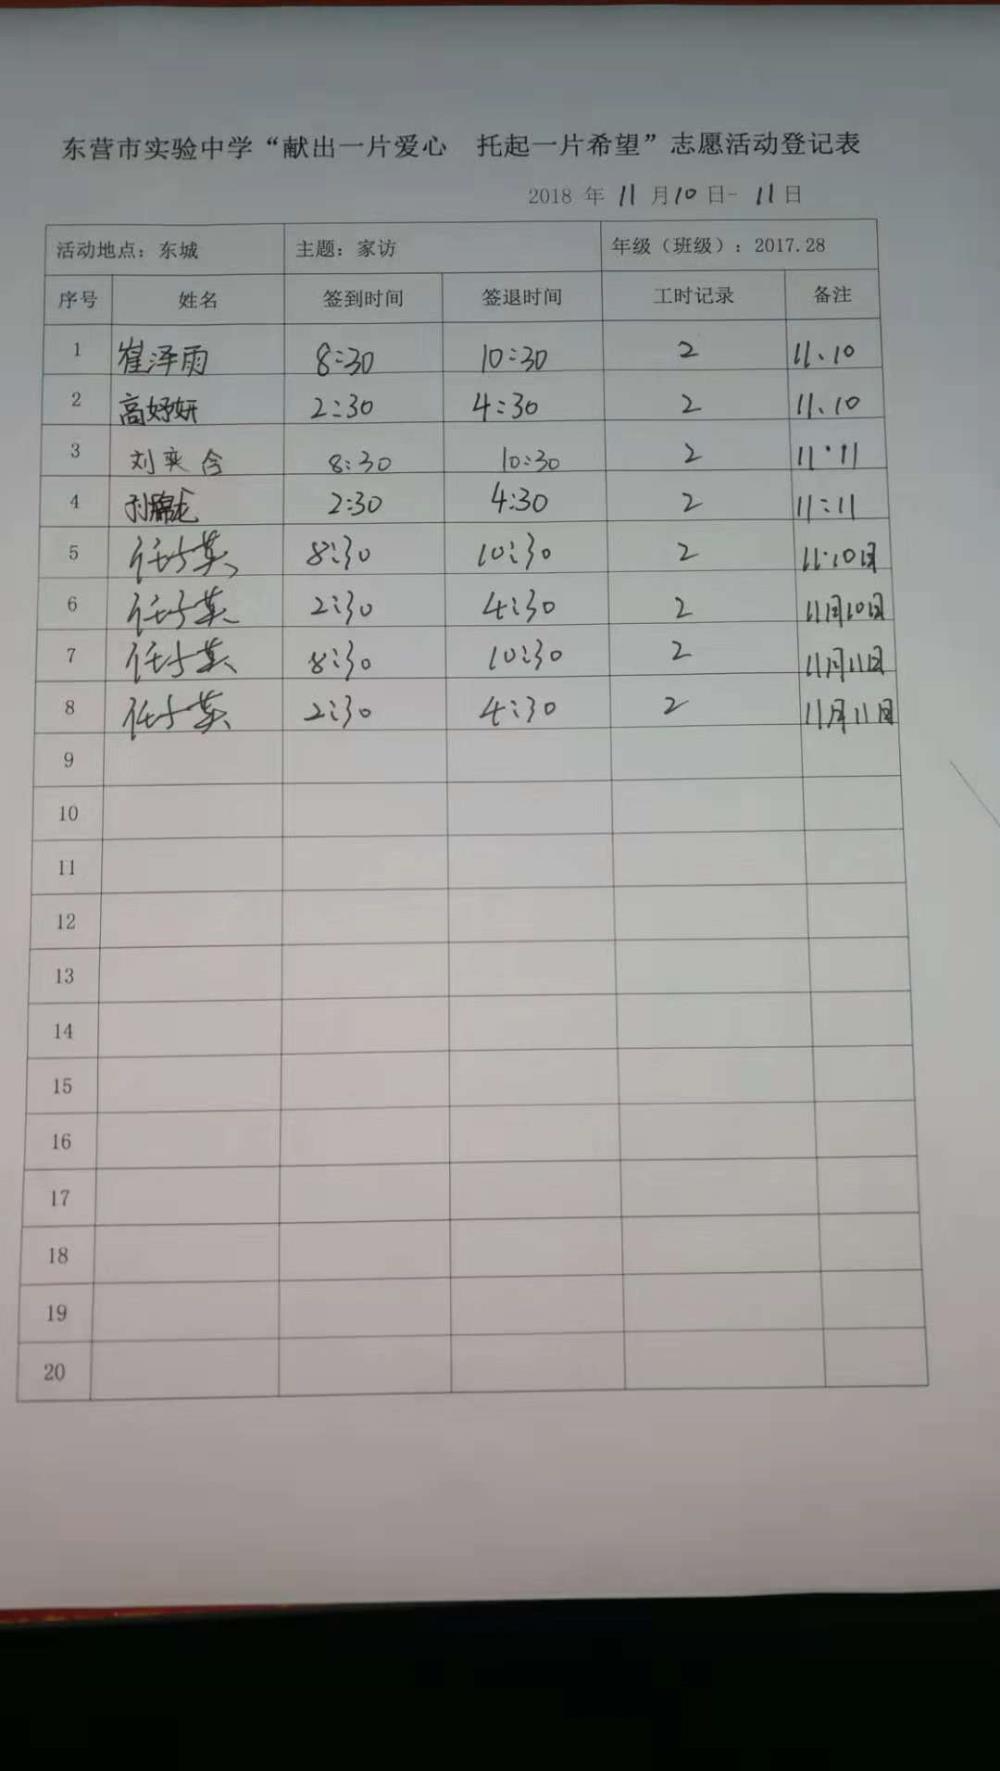 东营市实验中学“献出一片爱心 托起一片希望”志愿活动登记表
2018 年 11 月 10 日- 11 日
活动地点：东城 主题：家访 年级（班级）：2017.28
序号 姓名 签到时间 签退时间 工时记录 备注
1 崔泽雨 8:30 10:30 2 11、10
2 高妤妍 2:30 4:30 2 11、10
3 刘奕含 8:30 10:30 2 11·11
4 刘 2:30 4:30 2 11:11
5 任子英 8:30 10:30 2 11·10日
6 任子英 2:30 4:30 2 11月10日
7 任子英 8:30 10:30 2 11月11日
8 任子英 2:30 4:30 2 11月11日
9
10
11
12
13
14
15
16
17
18
19
20